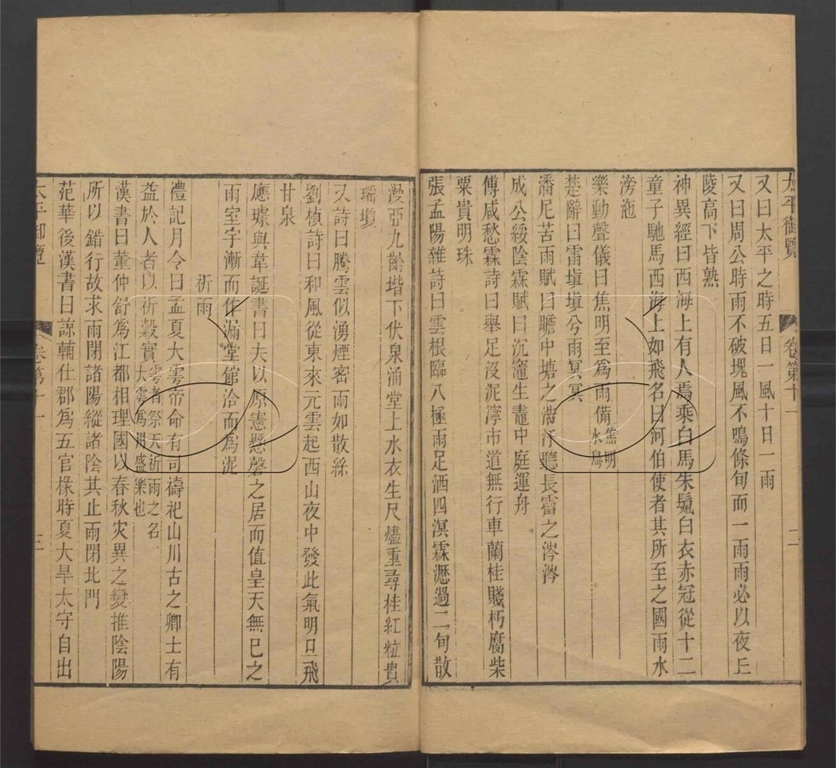 太平御覽 卷第十一 二
又曰太平之時五日一風十日一雨
又曰周公時雨不破塊風不鳴條旬而一雨雨必以夜丘
陵高下皆熟
神異經曰西海上有人焉乘白馬朱鬣白衣赤冠從十二
童子馳馬西海上如飛名曰河伯使者其所至之國雨水
滂沲
樂動聲儀曰焦明至爲雨備焦明水鳥
楚辭曰雷塡塡兮雨冥冥
潘尼苦雨賦曰瞻中塘之滂汗聽長霤之涔涔
成公綏陰霖賦曰沉竈生鼃中庭運舟
傅咸愁霖詩曰舉足沒泥濘市道無行車蘭桂賤朽腐柴
粟貴明珠
張孟陽雜詩曰雲根臨八極雨足洒四溟霖瀝過二旬散
漫亞九齡堦下伏泉涌堂上水衣生尺燼重尋桂紅粒貴
瑤瓊
又詩曰騰雲似湧煙密雨如散絲
劉楨詩曰和風從東來元雲起西山夜中發此氣明旦飛
甘泉
應璩與韋誕書曰夫以原憲懸磬之居而值皇天無巳之
雨室宇漸而作漏堂館洽而爲泥
祈雨
禮記月令曰孟夏大雩帝命有司禱祀山川古之卿士有
益於人者以祈穀實雩者祭天祈雨之名大雩爲用盛樂也
漢書曰董仲舒爲江都相理國以春秋灾異之變推陰陽
所以錯行故求雨閉諸陽縱諸陰其止雨閉北門
范華後漢書曰諒輔仕郡爲五官掾時夏大旱太守自出
太平御覽 卷第十一 三